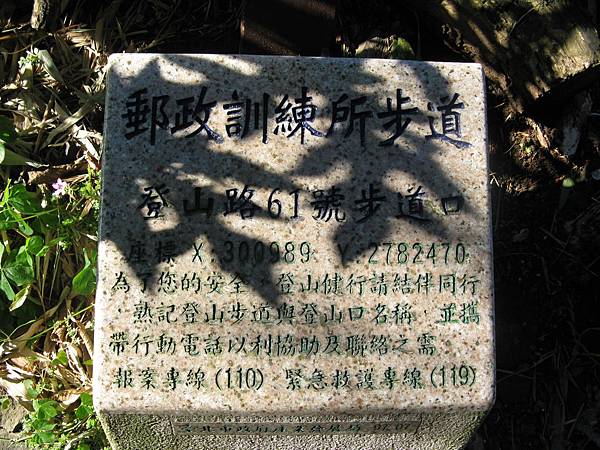 郵政訓練所步道
登山路61號步道口
座標 X:300989 Y:2782470
為了您的安全，登山健行請結伴同行
，熟記登山步道與登山口名稱，並攜
帶行動電話以利協助及聯絡之需。
報案專線(110) 緊急救護專線(119)
臺北市政府產業發展局 97.07